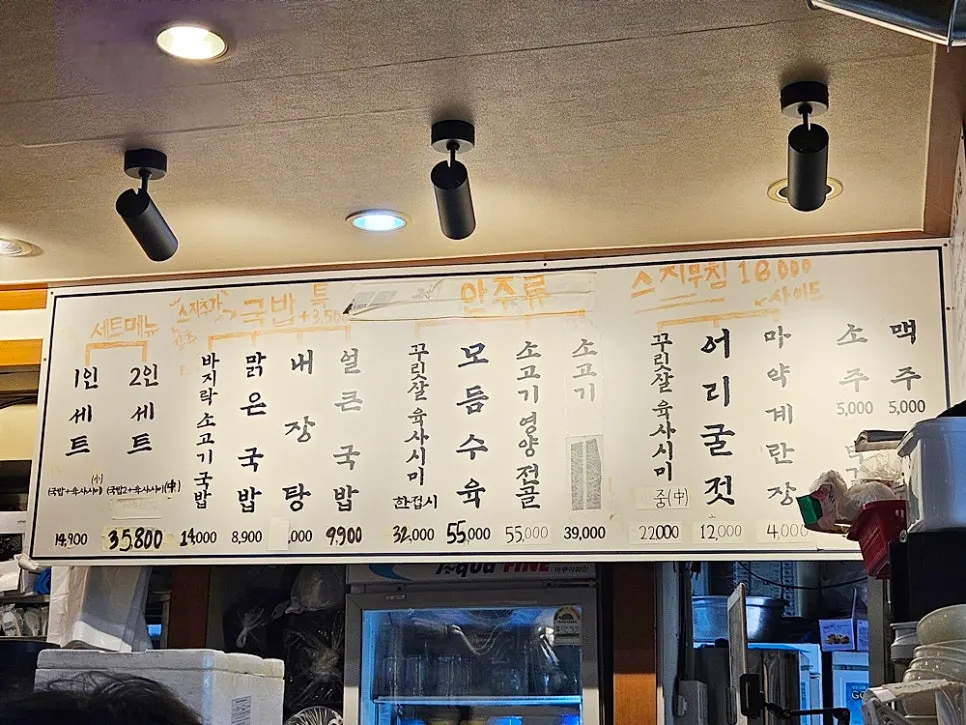 세트메뉴
1인 세트
(국밥+육사시미(小)
14,900
2인 세트
(국밥2+육사시미(中)
35,800
스지추가
국밥
특
+3,500
바지락 소고기 국밥
14,000
맑은 국밥
8,900
내장탕
,000
얼큰 국밥
9,900
안주류
꾸리살 육사시미
한접시
32,000
모듬수육
55,000
소고기영양전골
55,000
소고기
39,000
스지무침 18,000
사이드
꾸릿살 육사시미
중(中)
22000
어리굴젓
12,000
마약계란장
4,000
소주
5,000
맥주
5,000
Aqua FINE